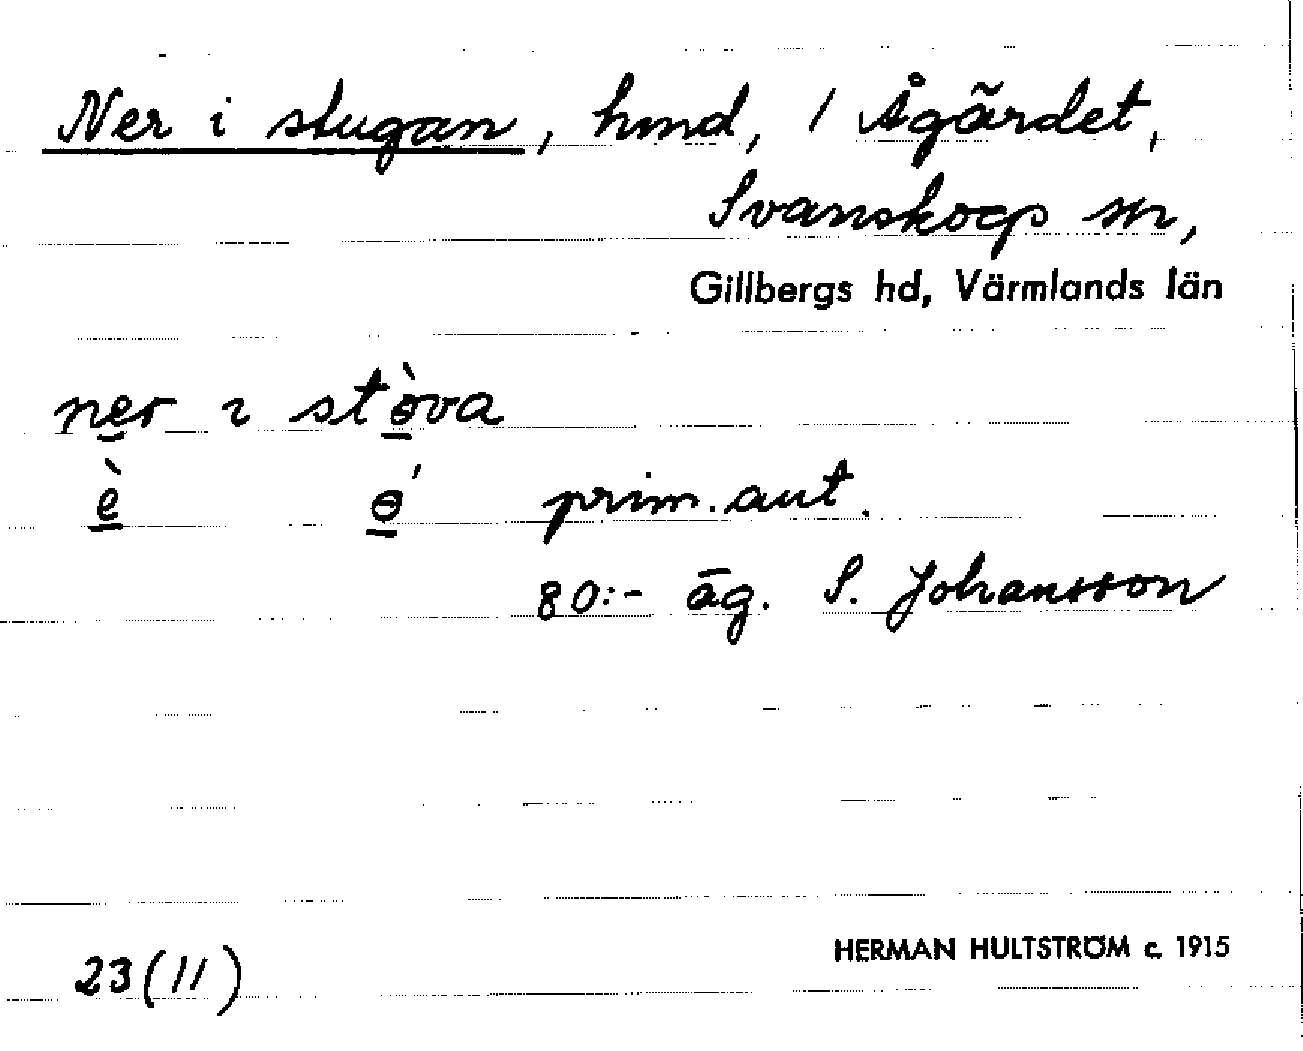 Ner i stugan, hmd, / Ågärdet,
Svanskog sn,
Gillbergs hd, Värmlands län
ner ı stɵ̀va
è ɵ́ prim. aut.
80:- äg. S. Johansson
23(11)
HERMAN HULTSTRÖM c. 1915